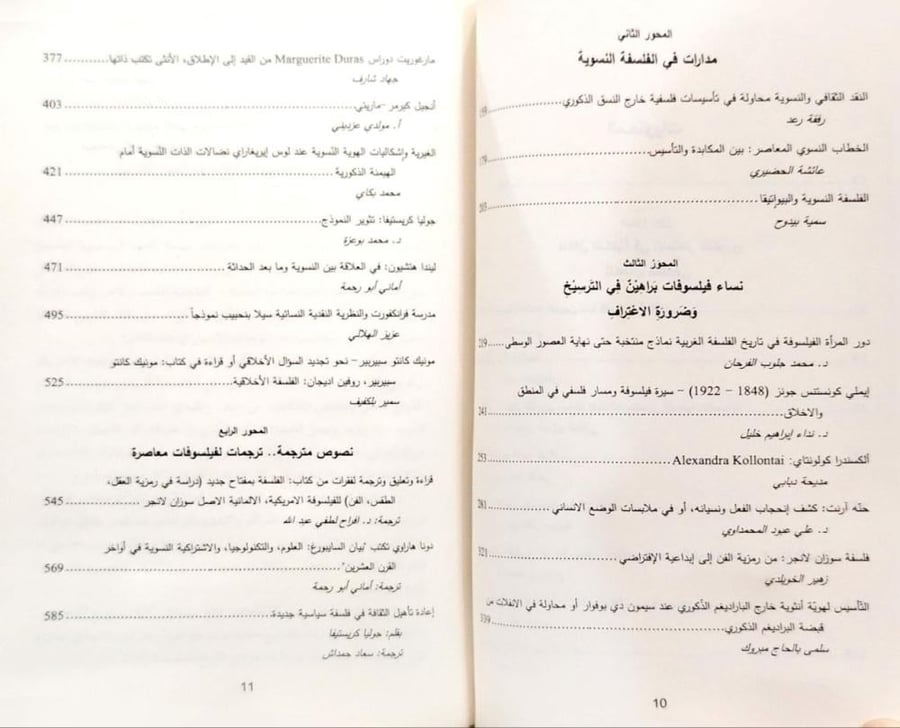 المحور الثاني
مدارات في الفلسفة النسوية
النقد الثقافي والنسوية محاولة في تأسيسات فلسفية خارج النسق الذكوري
رفقة رعد
الخطاب النسوي المعاصر: بين المكابدة والتأسيس
عائشة الحضيري
الفلسفة النسوية والبيواتيقا
سمية بيدوح
المحور الثالث
نساء فيلسوفات بَراهِيْنٌ في التَرسيْخِ
وَضَرورَةِ الاعْتِرافِ
دور المرأة الفيلسوفة في تاريخ الفلسفة الغربية نماذج منتخبة حتى نهاية العصور الوسطى 219
د. محمد جلوب الفرحان
إيملي كونستنس جونز (1848 - 1922) - سيرة فيلسوفة ومسار فلسفي في المنطق
والاخلاق 241
د. نداء إبراهيم خليل
ألكسندرا كولونتاي: Alexandra Kollontai 253
مديحة دبابي
حنّه آرنت: كشف إنحجاب الفعل ونسيانه، أو في ملابسات الوضع الانساني 281
د. علي عبود المحمداوي
فلسفة سوزان لانجر: من رمزية الفن إلى إبداعية الإفتراضي 321
زهير الخويلدي
التّأسيس لهويّة أنثوية خارج البارادايغم الذّكوري عند سيمون دي بوفوار أو محاولة في الانفلات من
قبضة البراديغم الذكوري 339
سلمى بالحاج مبروك
10
مارغوريت دوراس Marguerite Duras من القيد إلى الإطلاق، الأنثى تكتب ذاتها 377
جهاد شارف
أنجيل كيرمر -ماريتي 403
أ. مولدي عزديني
الغيرية وإشكاليات الهوية النّسوية عند لوس إيريغاراي نضالات الذات النّسوية أمام
الهيمنة الذكورية 421
محمد بكاي
جوليا كريستيفا: تثوير النموذج 447
د. محمد بوعزة
ليندا هتشيون: في العلاقة بين النسوية وما بعد الحداثة 471
أماني أبو رحمة
مدرسة فرانكفورت والنظرية النقدية النسائية سيلا بنحبيب نموذجاً 495
عزيز الهلالي
مونيك كانتو سبيربير - نحو تجديد السؤال الأخلاقي أو قراءة في كتاب: مونيك كانتو
سبيربير، روفين اديجان: الفلسفة الأخلاقية 525
سمير بلكفيف
المحور الرابع
نصوص مترجمة.. ترجمات لفيلسوفات معاصرة
قراءة وتعليق وترجمة لفقرات من كتاب: الفلسفة بمفتاح جديد (دراسة في رمزية العقل،
الطقس، الفن) للفيلسوفة الامريكية، الالمانية الاصل سوزان لانجر 545
ترجمة: د. افراح لطفي عبد الله
دونا هاراوي تكتب "بيان السايبورغ: العلوم، والتكنولوجيا، والاشتراكية النسوية في أواخر
القرن العشرين" 569
ترجمة: أماني أبو رحمة
إعادة تأهيل الثقافة في فلسفة سياسية جديدة 585
بقلم: جوليا كريستيفا
ترجمة: سعاد حمداش
11